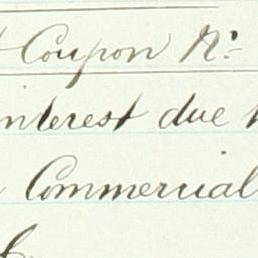 Coupon No
interest due
Commercial